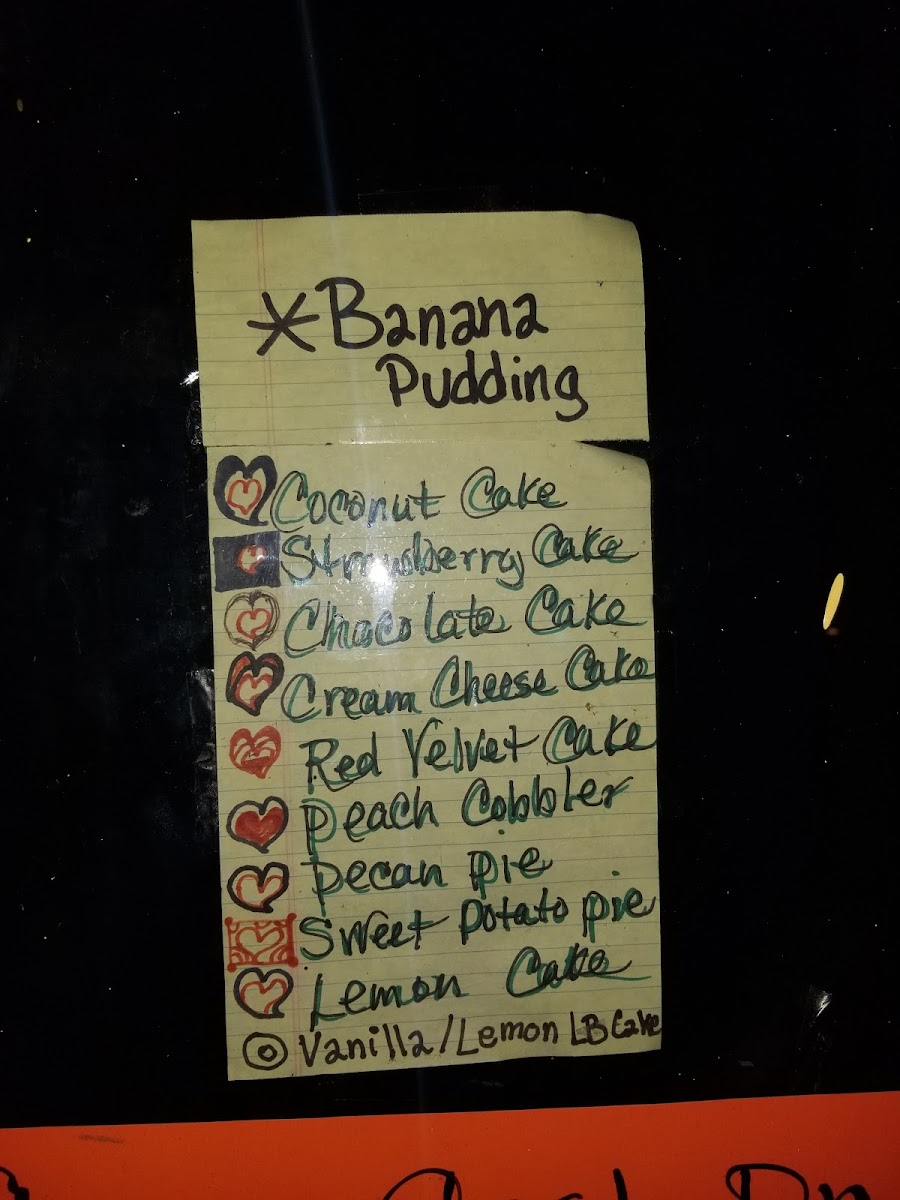 *Banana
Pudding
Coconut Cake
Strawberry Cake
Chocolate Cake
Cream Cheese Cake
Red Velvet Cake
Peach Cobbler
Pecan pie
Sweet potato pie
Lemon Cake
Vanilla/Lemon LB Cake